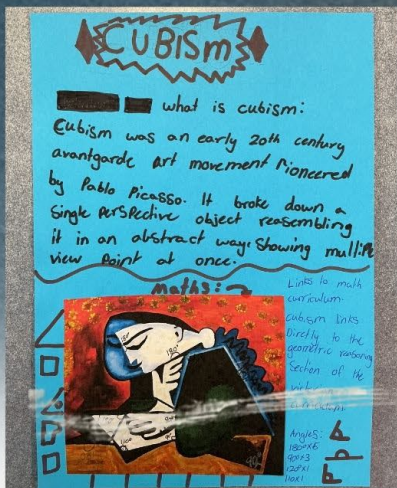 CUBISm
what is cubism:
Cubism was an early 20th century
avantgarde art movement Pioneered
by Pablo Picasso. It broke down a
Single PersPective object reasembling
it in an abstract way. Showing multiPle
view Point at once.
maths:
Links to math
curriculum.
cubism links
Directly to the
geometric reasoning
Section of the
Angles:
180°x6
90°x3
120°x1
110x1